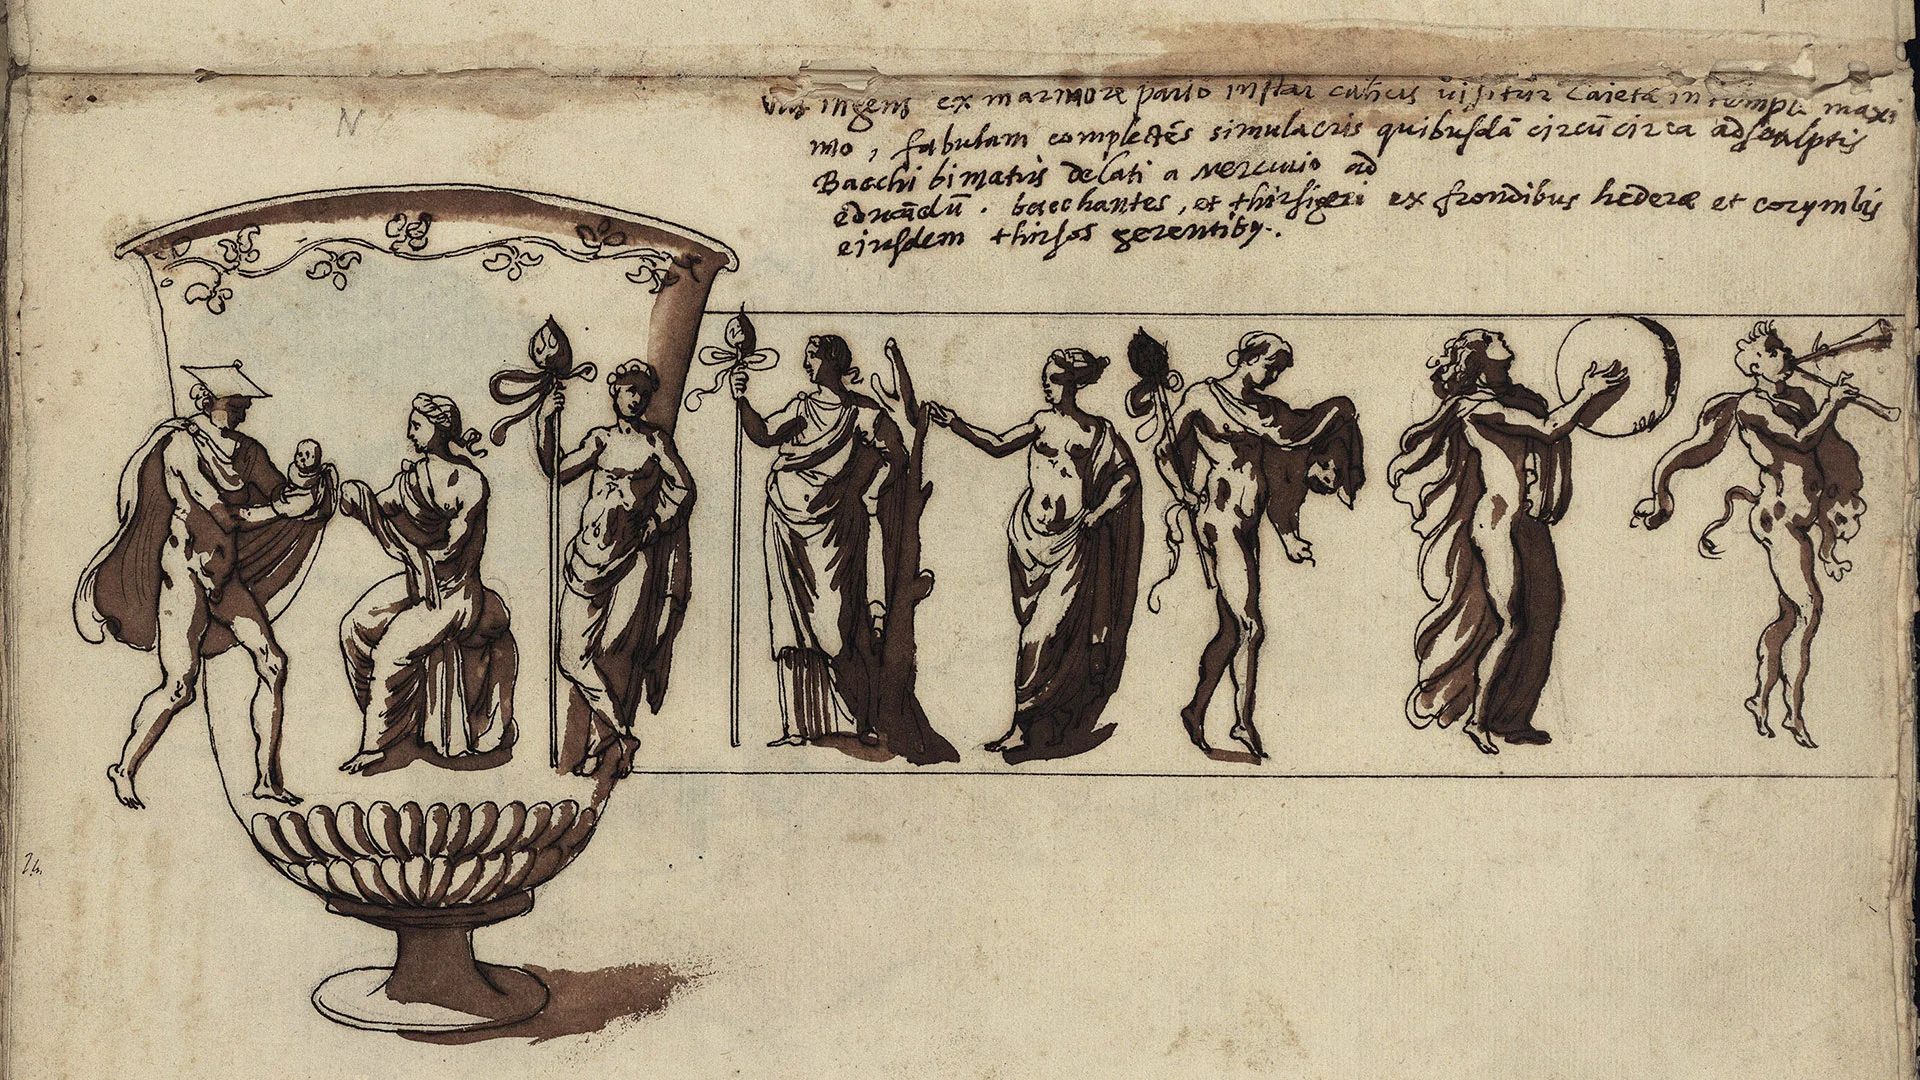 N
Vas ingens ex marmore pario instar calicis uisitur Caietæ in templo maxi
mo, fabulam complectẽs simulacris quibusdã circũcirca adsculptis
Bacchi bimatris delati a Mercurio ad
educãdũ. bacchantes, et thirsigeri ex frondibus hederæ et corymbis
eiusdem thirsos gerentibus.
24.